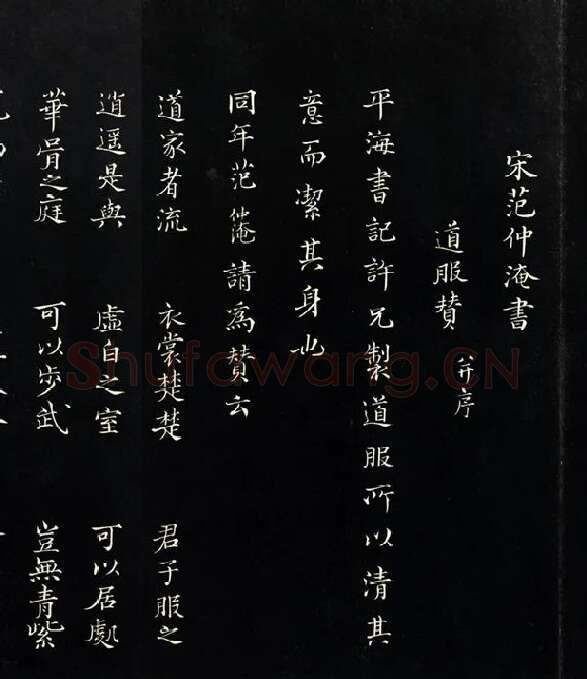 宋范仲淹書
道服賛 并序
平海書記許兄製道服所以清其
意而潔其身也
同年范仲淹請爲賛云
道家者流 衣裳楚楚 君子服之
逍遥是與 虛白之室 可以居處
華胥之庭 可以步武 豈無青紫
Shufawang.CN